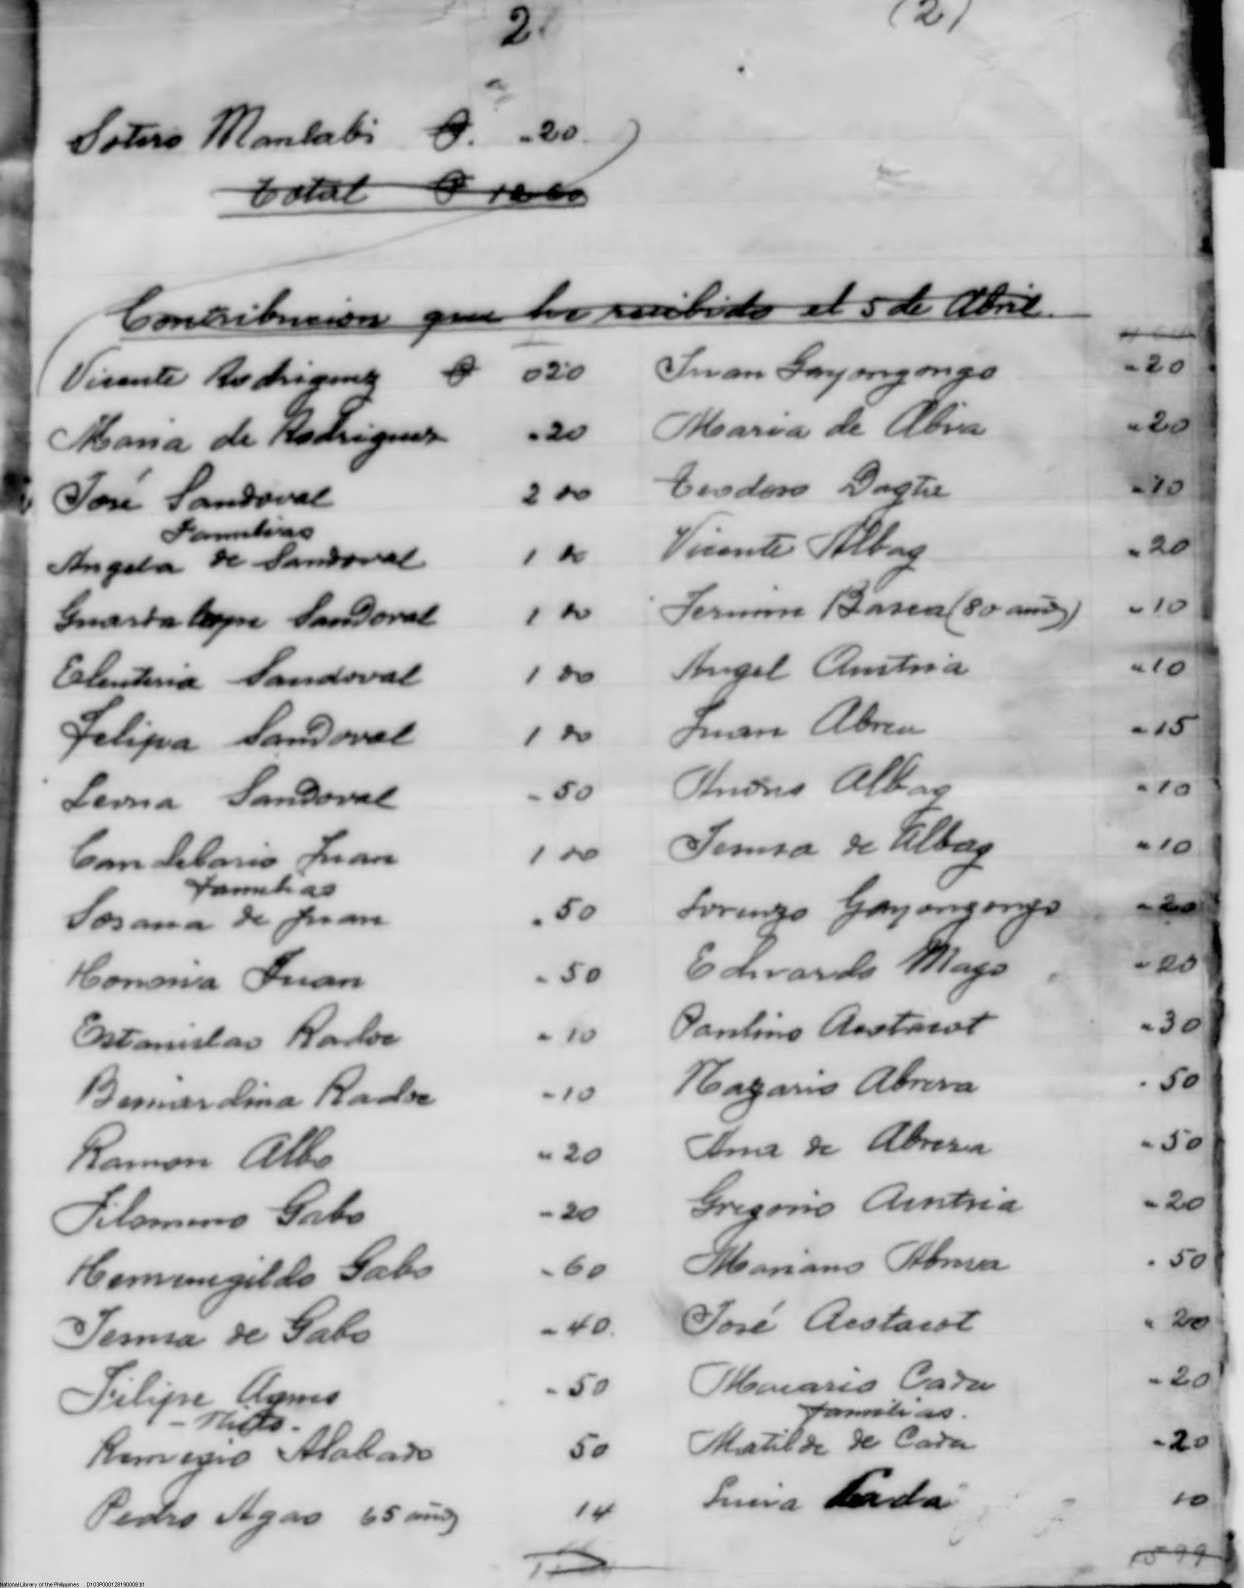 2. (2)
Sotero Manlabi ₱. -20
Total ₱ 12 60
Contribucion que he recibido el 5 de Abril.
Vicente Rodriguez ₱ 020
Maria de Rodriguez -20
José Sandoval 2 00
Familias
Angela de Sandoval 1 00
Guardalope Sandoval 1 00
Eleuteria Sandoval 1 00
Felipa Sandoval 1 00
Leona Sandoval -50
Candelario Juan 1 00
Familias
Sosana de Juan -50
Honoria Juan -50
Estanislao Radoc -10
Bernardina Radoc -10
Ramon Albo -20
Filomeno Gabo -20
Hermenegildo Gabo -60
Teresa de Gabo -40
Filipe Agnes -50
- Nieto -
Remegio Alabado 50
Pedro Agao 65 años 14
Juan Gayongongo -20
Maria de Abia -20
Teodoro Dagte -10
Vicente Albag -20
Fermin Basea (80 años) -10
Angel Austria -10
Juan Abreu -15
Andres Albag -10
Teresa de Albag -10
Lorenzo Gayongongo -20
Eduardo Mago -20
Paulino Aostacot -30
Nazario Abrera -50
Ana de Abrera -50
Gregorio Austria -20
Mariano Abrera -50
José Aostacot -20
Macario Cada -20
familias.
Matilde de Cada -20
Lucia Cada 10
1599
National Library of the Philippines